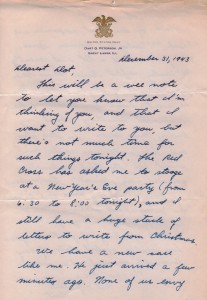 Gary G. Peterson, Jr.
Great Lakes, Ill.
December 31, 1943
Dearest Dot,
This will be a wee note
to let you know that I'm
thinking of you, and that I
want to write to you but
there's not much time for
such things tonight. The Red
Cross has asked me to stooge
at a New Year's Eve party (from
6:30 to 8:00 tonight), and I
still have a huge stack of
letters to write from Christmas.
We have a new
like me. He just arrived a few
minutes ago. None of us envy